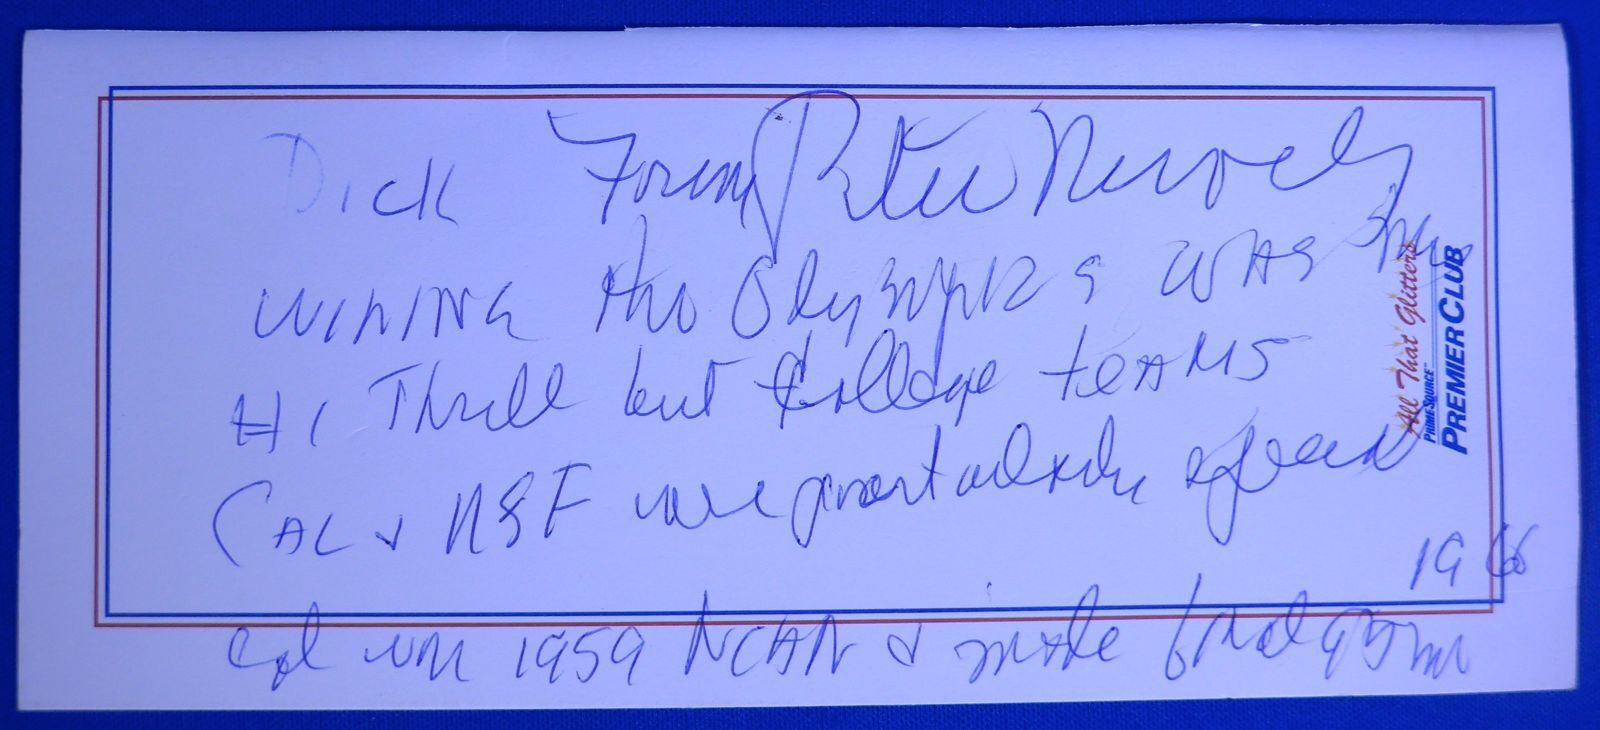 Dick From Pete Newell
WINING the Olympics WAS
Hi Thrill but College teAMS
CAL & USF were
1960
Cal won 1959 NCAA & made final game
All That Glitters
PRIMESOURCE
PREMIER CLUB